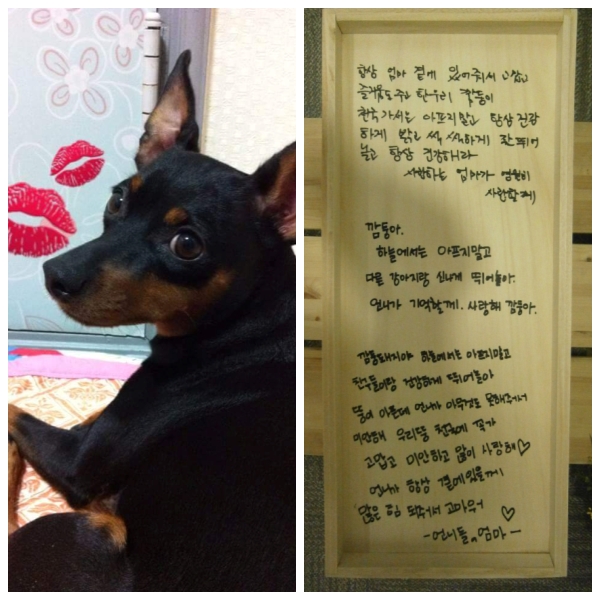 항상 엄마 곁에 있어주서
즐거움도 주고 한우리 깜둥이
천국가서는 아프지말고 항상 건강
하게 밝고 씩씩하게 잘 뛰어
놀고 항상 건강해라
사랑하는 엄마가 영원히
사랑할께
깜둥아.
하늘에서는 아프지말고
다른 강아지랑 신나게 뛰어놀아.
언니가 기억할께. 사랑해 깜둥아.
깜둥돼지야 하늘에서는 아프지말고
친구들이랑 건강하게 뛰어놀아
뚱이 아픈데 언니가 아무것도 못해주서
미안해 우리뚱 천국에 꼭가
고맙고 미안하고 많이 사랑해♡
언니가 항상 곁에있을께
많은 힘 되주서 고마워 ♡
-언니들, 엄마-